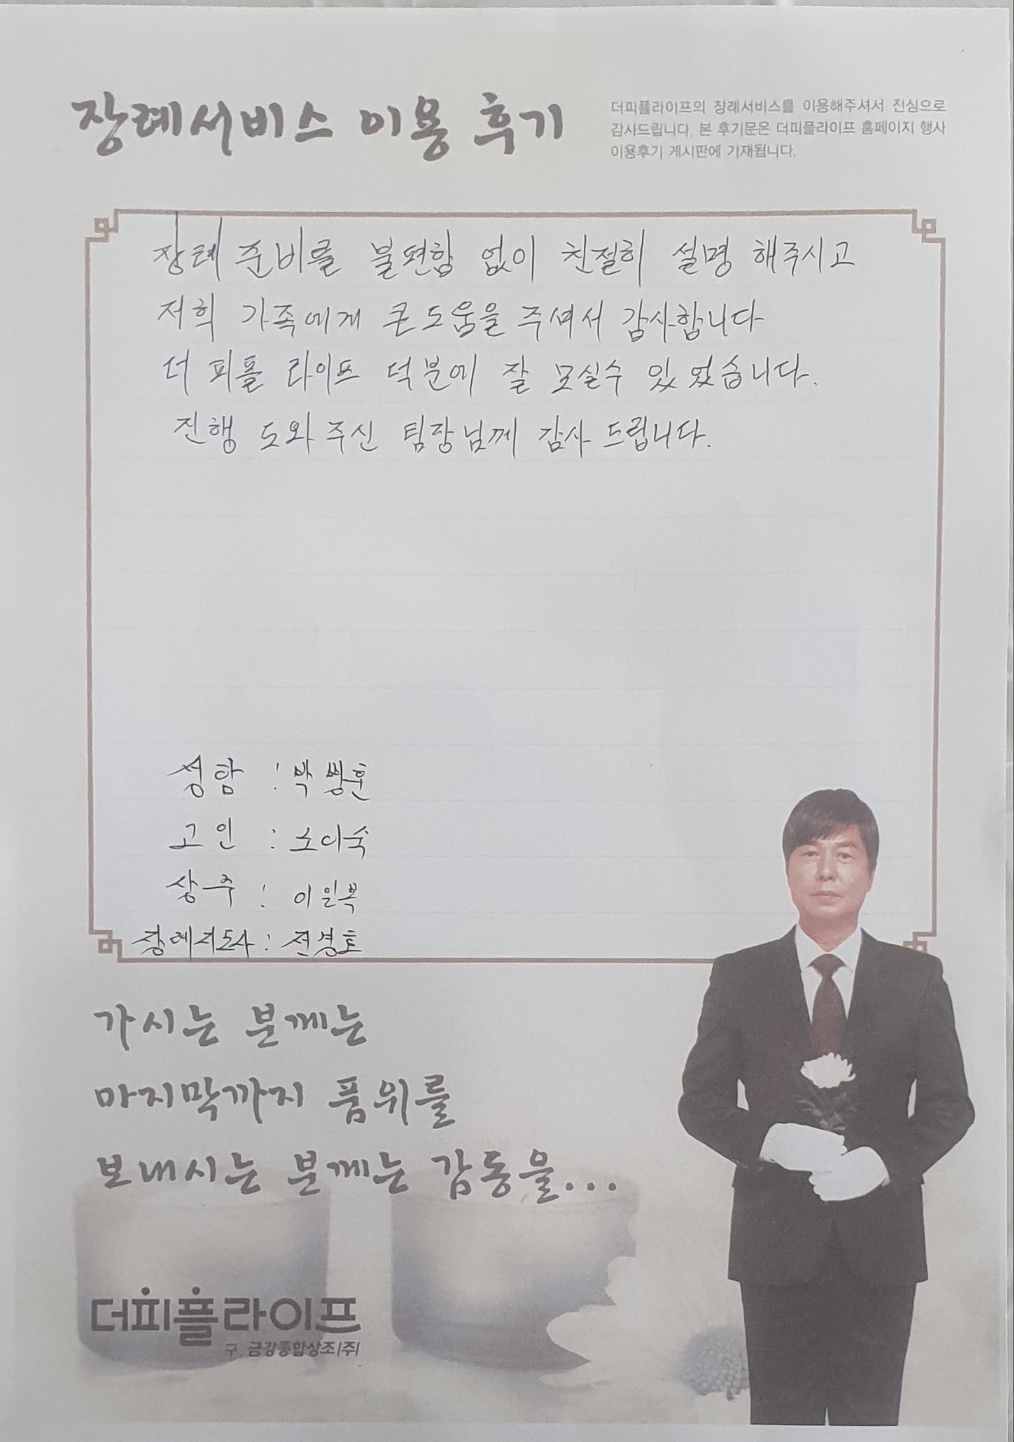 장례서비스 이용 후기
더피플라이프의 장례서비스를 이용해주셔서 진심으로
감사드립니다. 본 후기문은 더피플라이프 홈페이지 행사
이용후기 게시판에 기재됩니다.
장례 준비를 불편함 없이 친절히 설명 해주시고
저희 가족에게 큰도움을 주셔서 감사합니다
더 피플 라이프 덕분에 잘 모실수 있었습니다.
진행 도와주신 팀장님께 감사 드립니다.
성함 : 박
고인 : 노미숙
상주 : 이일복
장례지도사 : 전경호
가시는 분께는
마지막까지 품위를
보내시는 분께는 감동을...
더피플라이프
구. 금강종합상조(주)